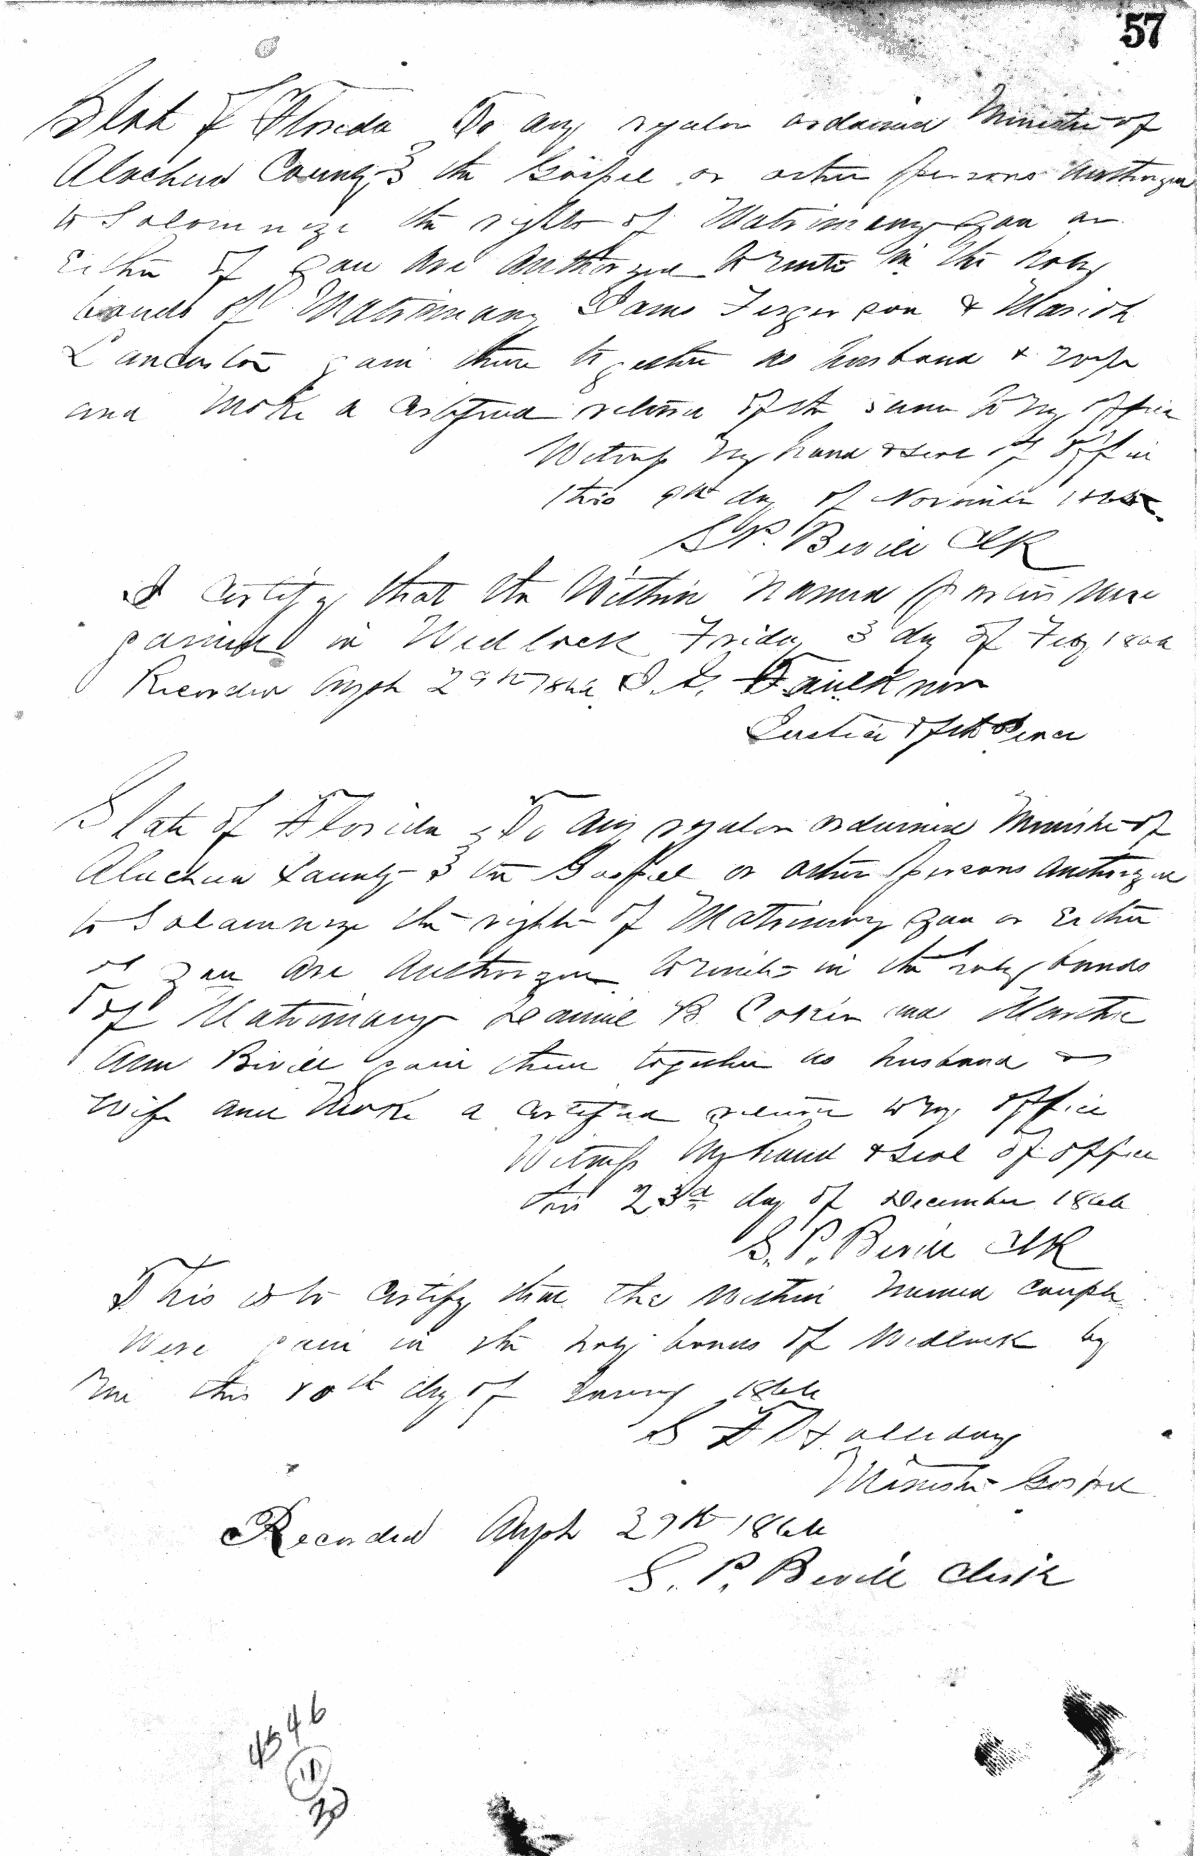 57
State of Florida To any regular ordained Minister of
Alachua County } the Gospel or other persons Authorized
to Solomnize the rights of Matrimony you or
Either of you are Authorized to unite in the holy
bonds of Matrimony James Ferguson & Mariah
Lancaster join them together as husband & wife
and Make a Certified return of the same to my office
Witness my hand & seal of office
this 9th day of November
S.P. Bevill Clk
I Certify that the Within Named persons were
joined in Wedlock Friday 3 day of Feby 1866
Recorded 29th 1866 Faulknor
Justice of the Peace
State of Florida } To any regular ordained Minister of
Alachua County } the Gospel or other persons Authorized
to Solamnize the rights of Matrimony you or Either
of you are Authorized to unite in the holy bonds
of Matrimony B. and Martha
Ann Bevill join them together as husband &
Wife and Make a Certified return to my office
Witness My hand & seal of office
this 23d day of December 1866
S. P. Bevill Clk
This is to Certify that the within named couple
Were join in the holy bonds of Wedlock by
me this 10th day of 1866
S F Halliday
Minister Gospel
Recorded 29th 1866
S. P. Bevill Clerk
4546
11
30